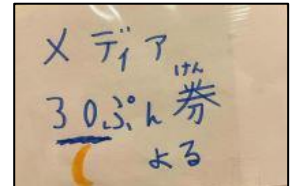 メディア
30ぷん券
けん
よる